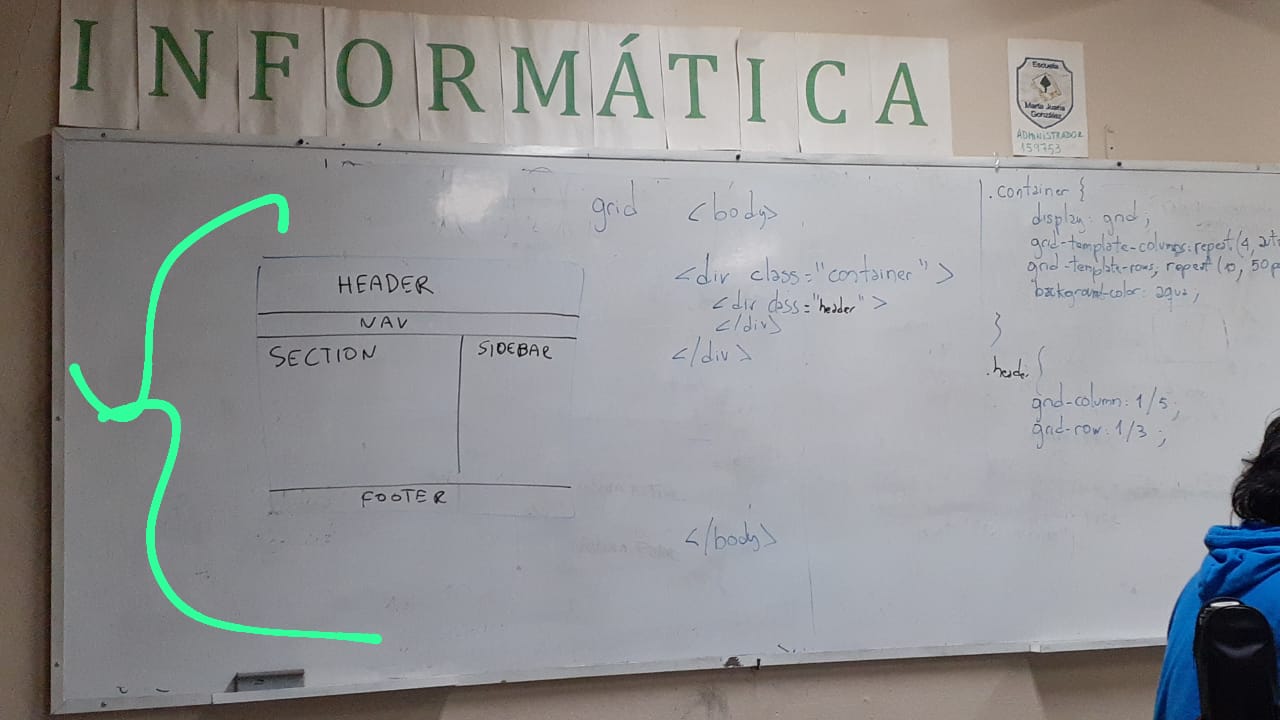 INFORMÁTICA
Escuela
Marta Juana
González
ADMINISTRADOR
159753
grid
HEADER
NAV
SECTION
SIDEBAR
FOOTER
<body>
<div class="container">
<div class="header">
</div>
</div>
</body>
.container {
display: grid;
grid-template-columns: repeat(4,
grid-template-rows: repeat(10, 50p
background-color: aqua;
}
.header {
grid-column: 1/5;
grid-row: 1/3;